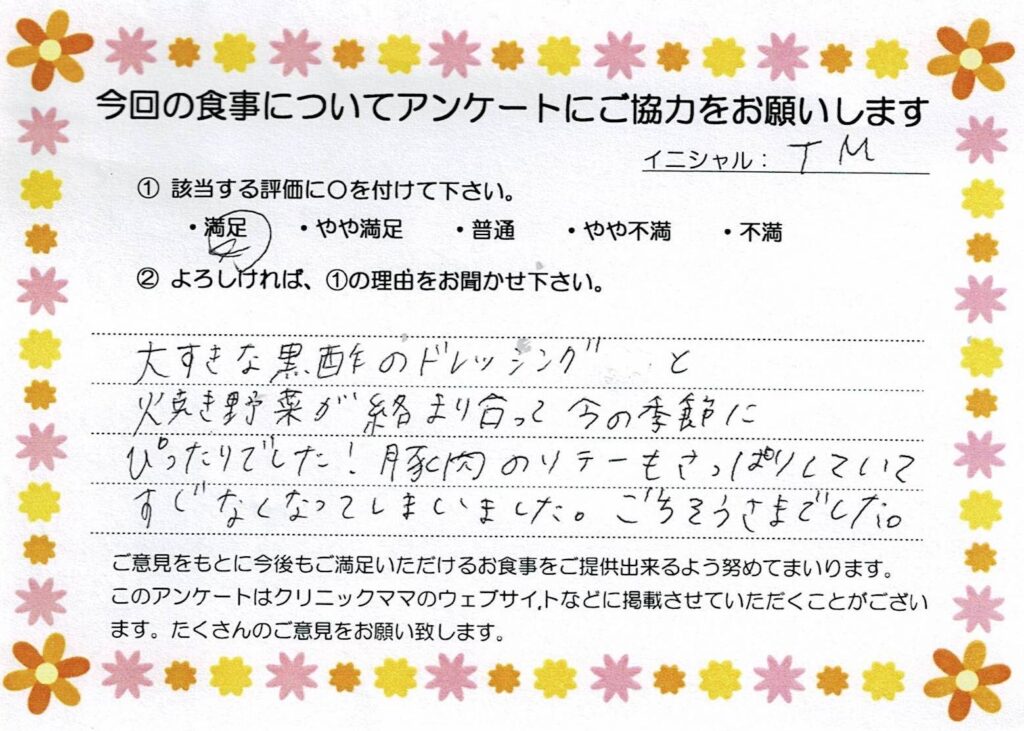 今回の食事についてアンケートにご協力をお願いします
イニシャル： T M
① 該当する評価に〇を付けて下さい。
・満足 ・やや満足 ・普通 ・やや不満 ・不満
② よろしければ、①の理由をお聞かせ下さい。
大すきな黒酢のドレッシング と
火焼き野菜が絡まり合って今の季節に
ぴったりでした！豚肉のソテーもさっぱりしていて
すぐなくなってしまいました。ごちそうさまでした。
ご意見をもとに今後もご満足いただけるお食事をご提供出来るよう努めてまいります。
このアンケートはクリニックママのウェブサイトなどに掲載させていただくことがござい
ます。たくさんのご意見をお願い致します。